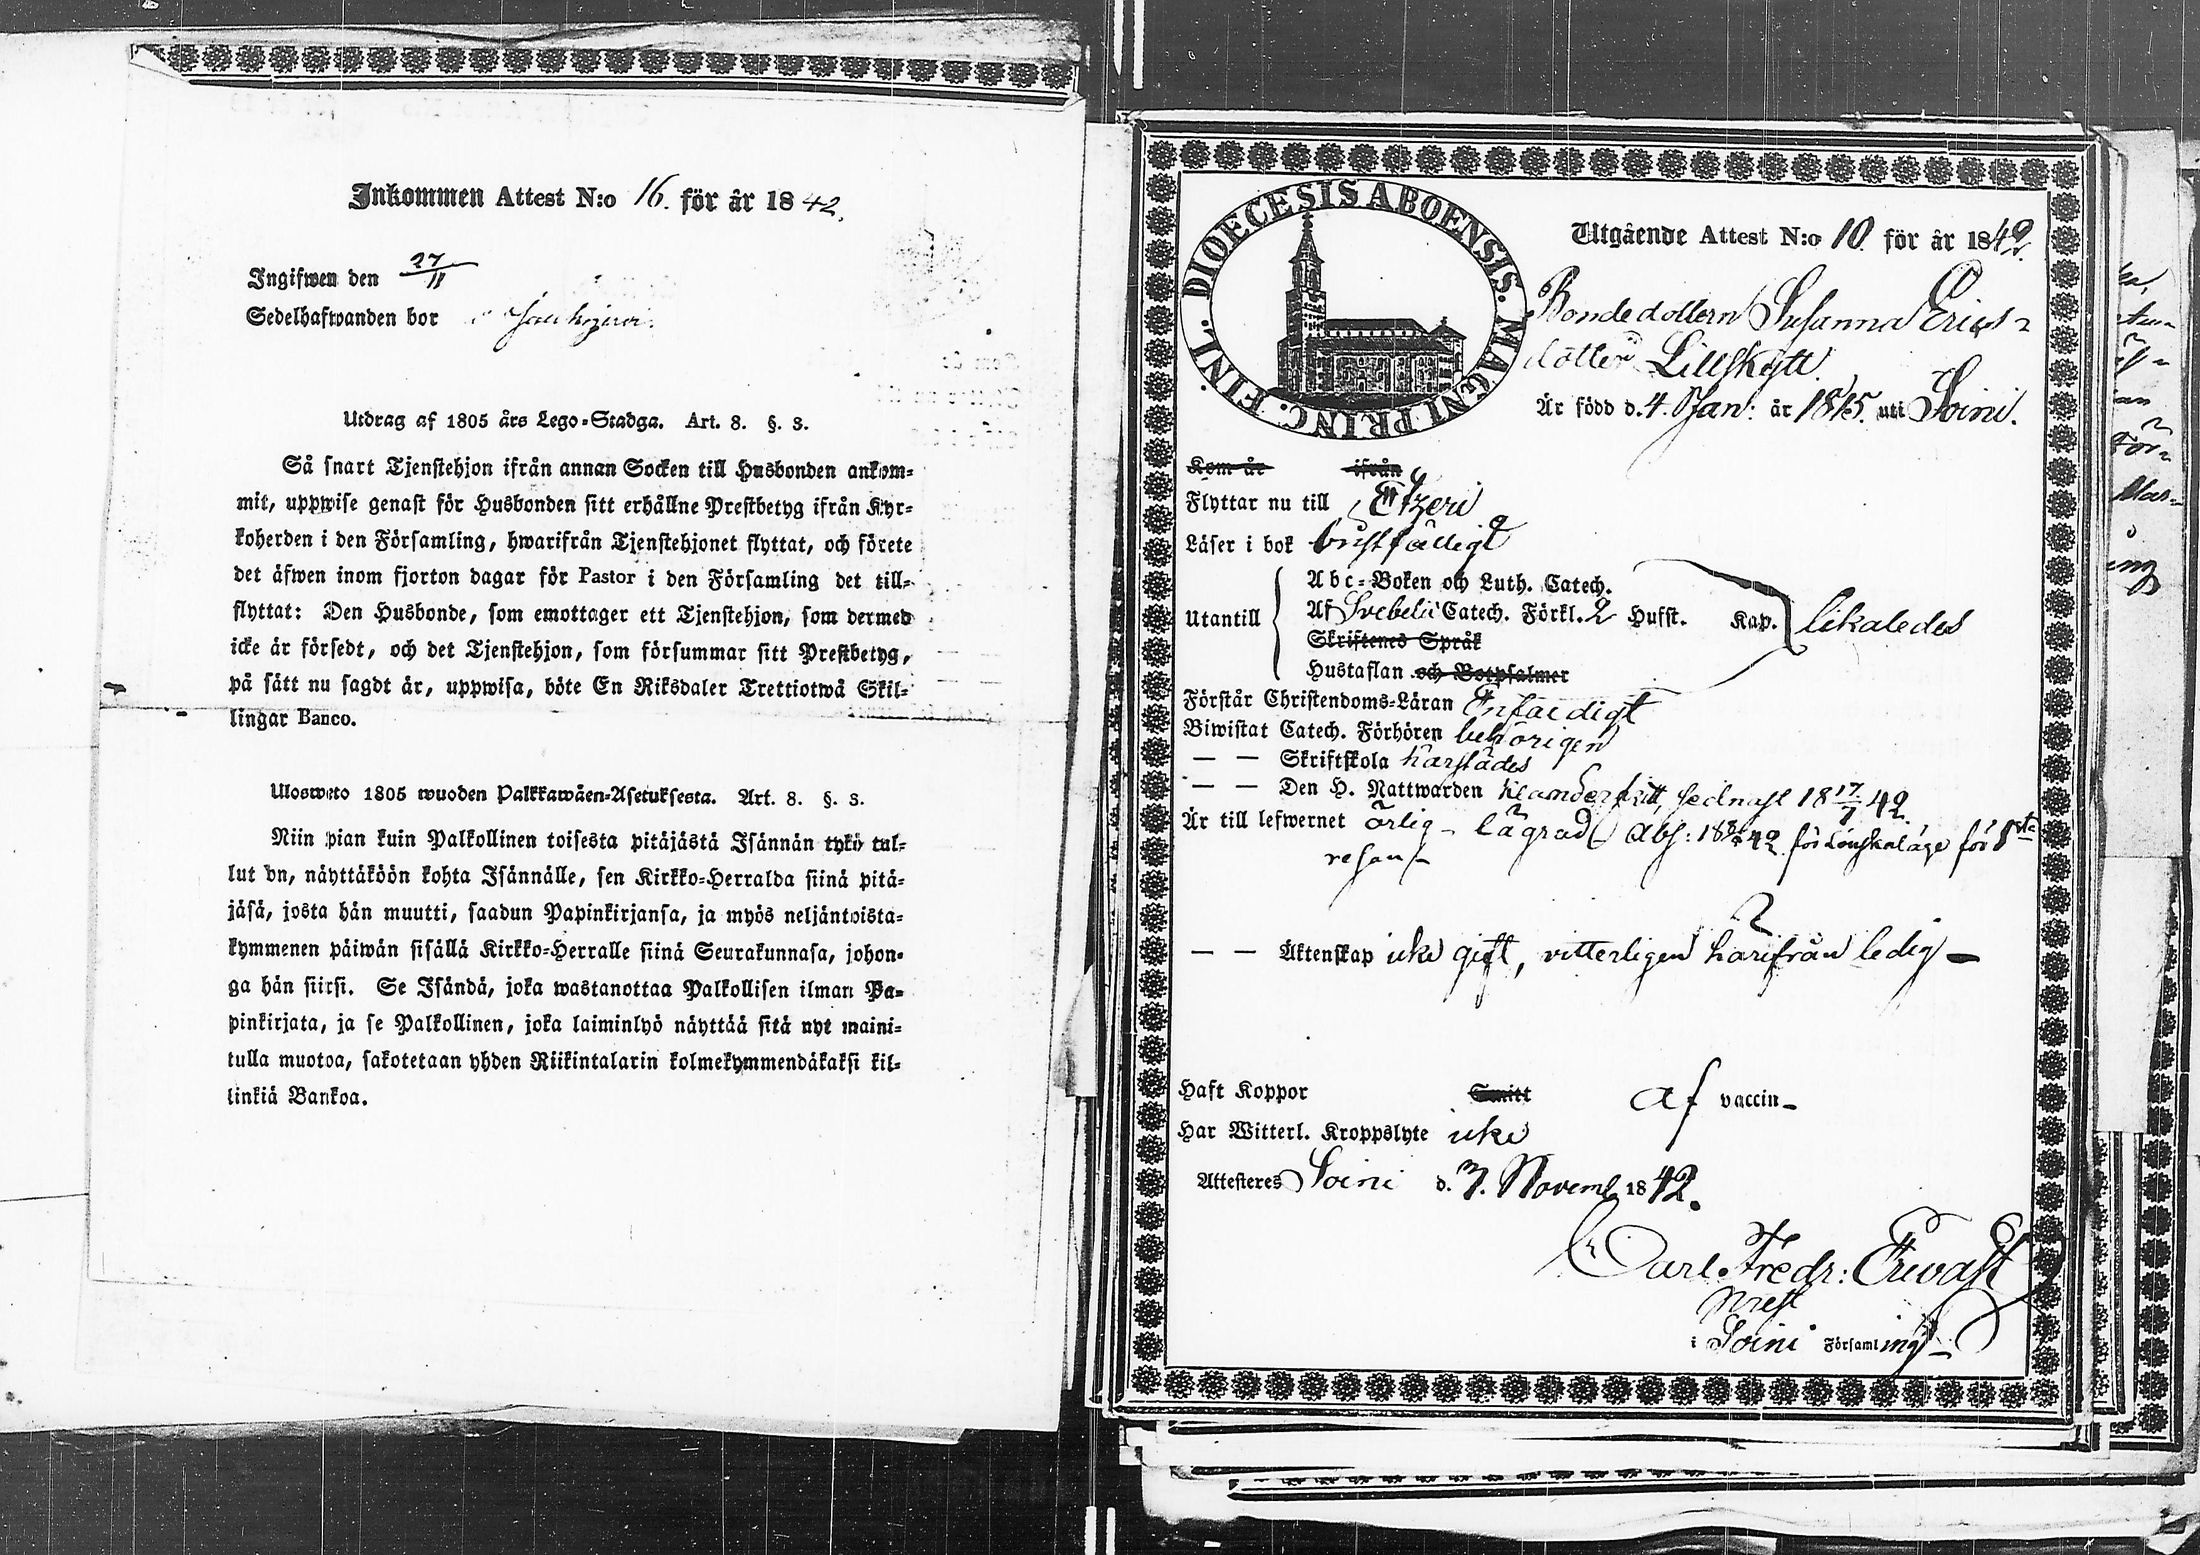 Inkommen Attest N:o 16. för år 1842.
Ingifwen den 27/11
Sedelhafwanden bor
Utdrag af 1805 års Lego-Stadga. Art. 8. §. 3.
Så snart Tjenstehjon ifrån annan Socken till Husbonden ankom-
mit, uppwise genast för Husbonden sitt erhållne Prestbetyg ifrån Kyr-
koherden i den Församling, hwarifrån Tjenstehjonet flyttat, och förete
det äfwen inom fjorton dagar för Pastor i den Församling det till-
flyttat: Den Husbonde, som emottager ett Tjenstehjon, som dermed
icke är försedt, och det Tjenstehjon, som försummar sitt Prestbetyg,
på sätt nu sagdt är, uppwisa, böte En Riksdaler Trettiotwå Skil-
lingar Banco.
Ulosweto 1805 wuoden Palkkawäen-Asetuksesta. Art. 8. §. 3.
Niin pian kuin Palkollinen toisesta pitäjästä Isännän tykö tul-
lut on, näyttäköön kohta Isännälle, sen Kirkko-Herralda siinä pitä-
jäsä, josta hän muutti, saadun Papinkirjansa, ja myös neljäntoista-
kymmenen päiwän sisällä Kirkko-Herralle siinä Seurakunnasa, johon-
ga hän siirsi. Se Isändä, joka wastanottaa Palkollisen ilman Pa-
pinkirjata, ja se Palkollinen, joka laiminlyö näyttää sitä nyt maini-
tulla muotoa, sakotetaan yhden Riikintalarin kolmekymmendäkaksi kil-
linkiä Bankoa.
DIOECESIS ABOENSIS. MAGNI PRINC. FINL.
Utgående Attest N:o 10. för år 1842.
Bondedottern Susanna Erics-
dotter Lillskytt.
Är född d. 4. Jan: år 1815. uti Soini.
Kom år ifrån
Flyttar nu till Etzeri
Läser i bok bristfälligt
Abc-Boken och Luth. Catech.
Utantill Af Svebelii Catech. Förkl. 2 Hufst. Kap. likaledes
Skriftenes Språk
Hustaflan och Botpsalmer
Förstår Christendoms-Läran Enfaldigt
Biwistat Catech. Förhören behörigen
— — Skriftskola härstädes
— — Den H. Nattwarden klanderfritt, sednast 18 17/7 42.
Är till lefwernet ärlig - lägrad Abs: 18 42 för Lönskaläge för 1sta
resan -
— — Äktenskap icke gift, vitterligen härifrån ledig -
Haft Koppor Smitt af vaccin -
Har Witterl. Kroppslyte icke
Attesteras Soini d. 7. Novemb 1842.
Carl Fredr: Erwast
Prest
i Soini Församling -